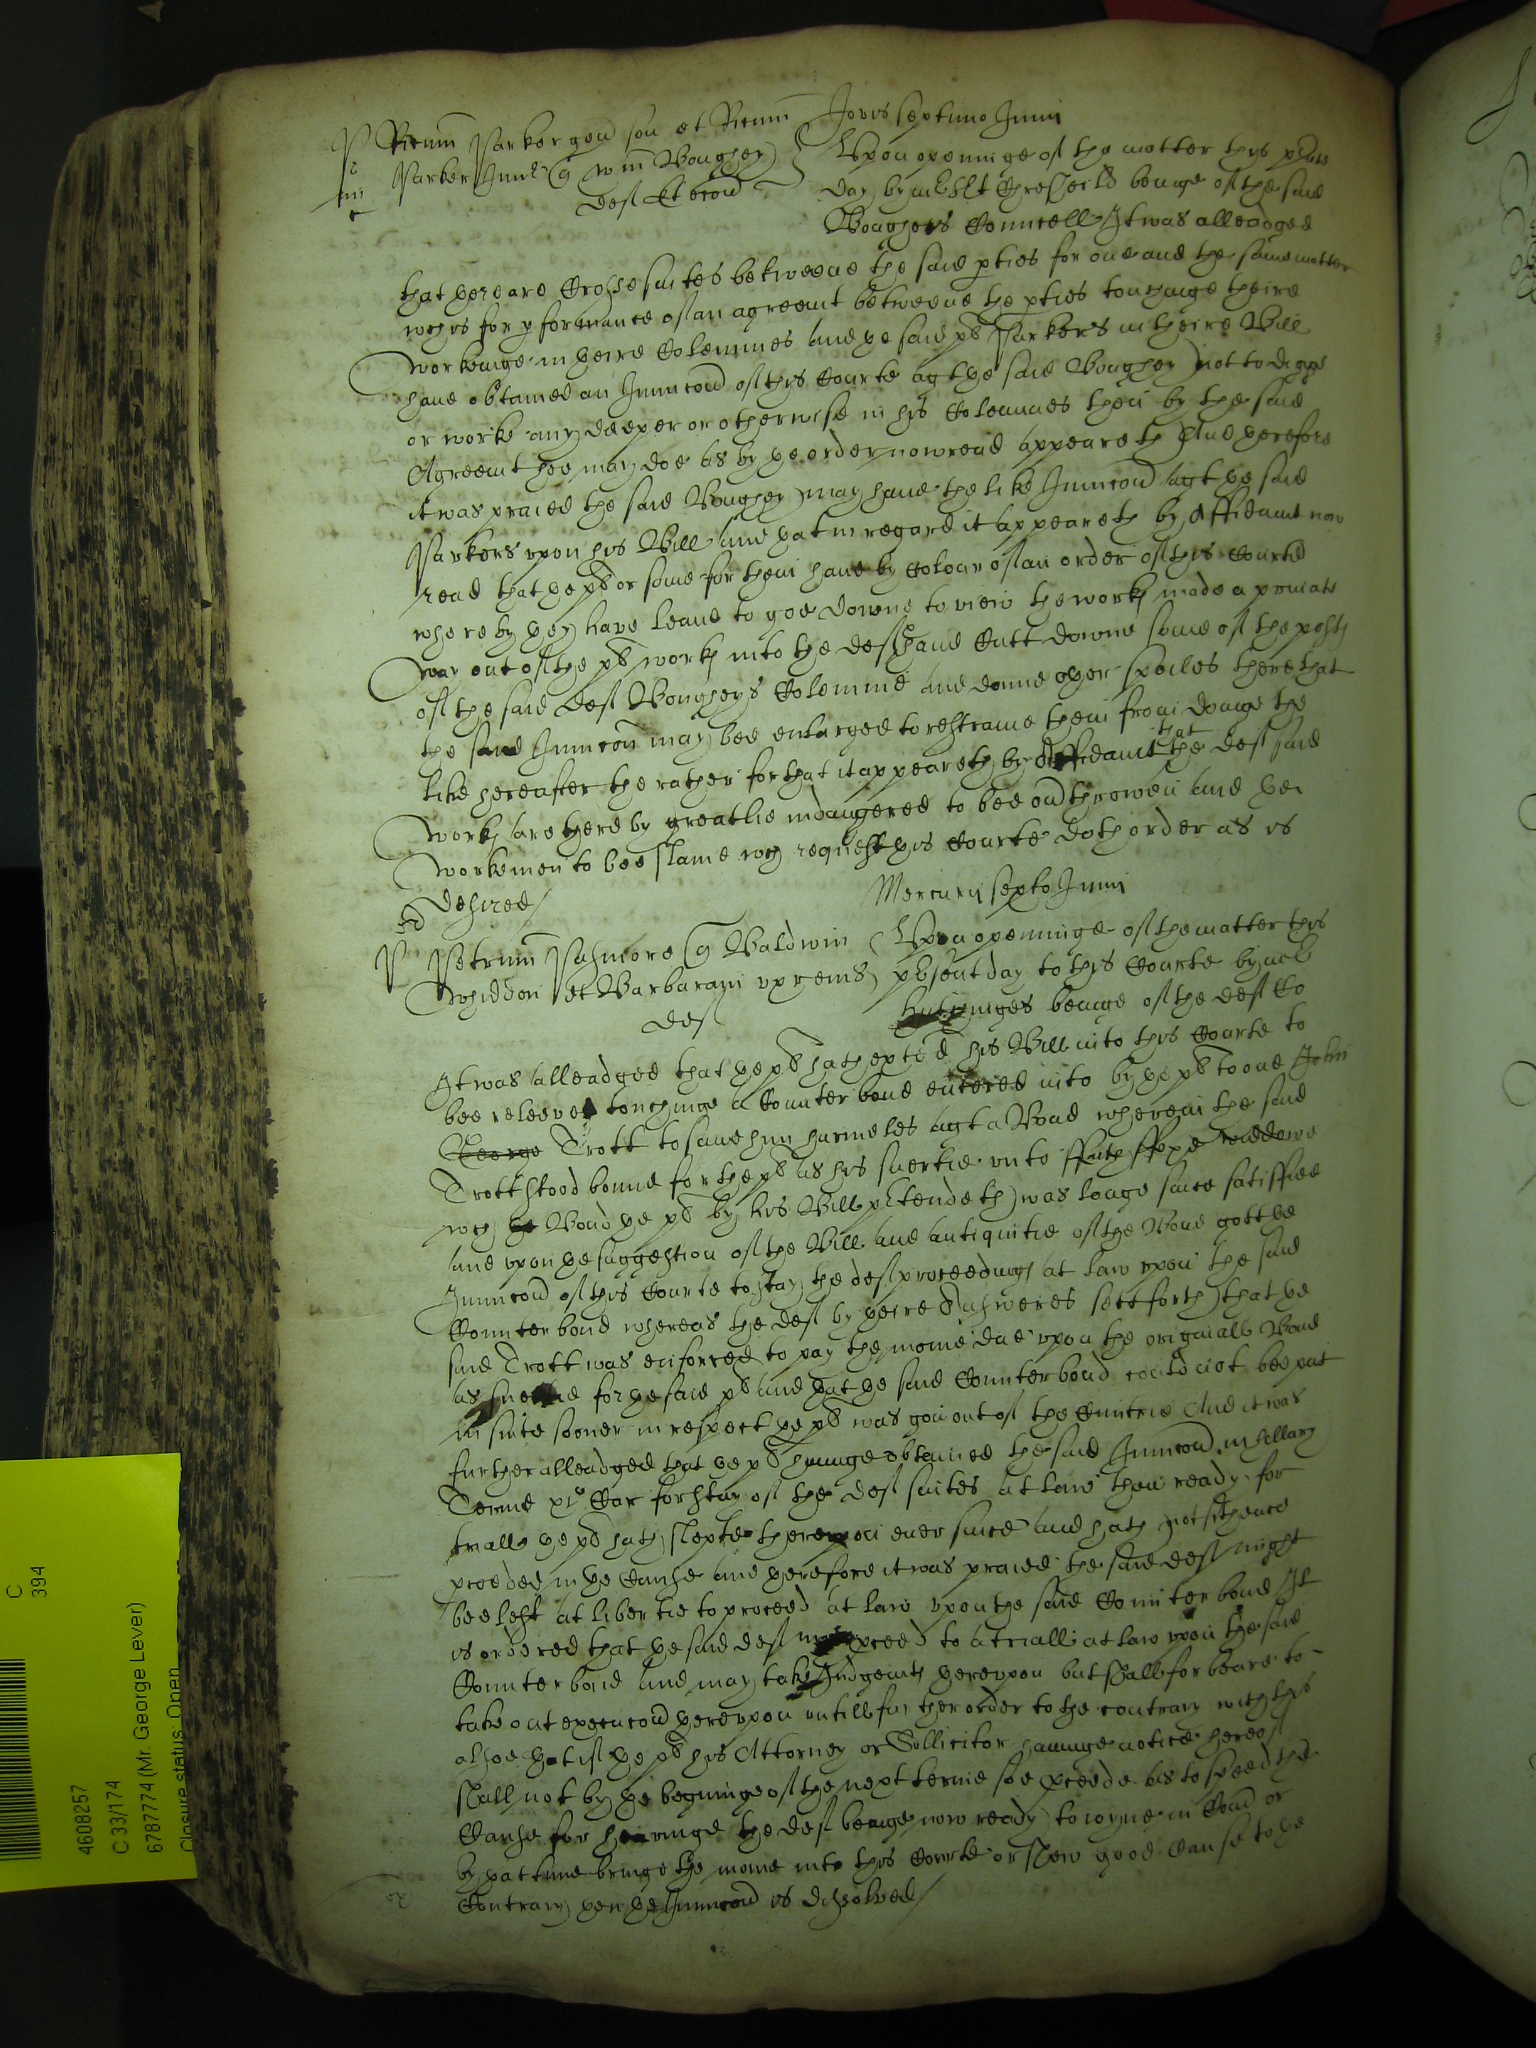 Jovis septimo Junii
P Ricum Parker gen sen et Ricum
Parker Junr q Wm Boughey
def Et econ
Upon openinge of the matter this pnte
day by mr Srt Thresheild beinge of the said
Bougheys Councell It was alleadged
that there are Crosse suites betweene the said pties for one and the same matter
wch is for pformance of an agreemt betweene the pties touchinge theire
workeinge in theire Colemines and the said pls Parkers in theire Bill
have obtained an Iniuncon of this Courte agt the said Boughey not to digge
or worke any deeper or otherwise in his Coleanes then by the said
Agreemt hee may doe as by the order now read appeareth And therefore
it was praied the said Boughey may have the like Iniuncon agt the said
Parkers upon his Bill and that in regard it appeareth by Affidavit now
read that the pls or some for them have by Coloar of an order of this Courte
whereby they have leave to goe downe to view the works made a private
way out of the pls works into the defts and Cutt downe some of the posts
of the said def Bougheys Colemine and donne other spoiles there that
the said Iniuncon may bee enlarged to restraine them from doinge the
like hereafter the rather for that it appeareth by Affidavit that the def said
works are thereby greatlie indaungered to bee overthrowen and the
workemen to bee slaine wch request this Courte doth order as is
desired/
Mercurii sexto Junii
P Petrum Pasmore q Baldwin
Whiddon et Barbaram uxor eius
def
Upon openninge of the matter this
present day to this Courte by mr
Hutchinges beinge of the def Co
It was alleadged that the pl hath exhited his Bill into this Courte to
bee releeved touchinge a Counter bond entered into by the pl to one John
George Trott to save him harmeles agt a Bond wherein the said
Trott stood bound for the pl as his suertie unto widdowe
wch Bond the pl by his Bill ptendeth was longe since satisfied
and upon the suggestion of the Bill and antiquitie of the Bond gott the
Iniuncon of this Courte to stay the def proceedings at law upon the said
Counter bond whereas the def by theire Answeres sett forth that the
said Trott was enforced to pay the monie due upon the originall Bond
as suertie for the said pl and that the said Counterbond could not bee put
in suite sooner in respect the pl was gon out of the Cuntrie And it was
further alleadged that the pl havinge obtained the said Iniuncon in Hillary
Terme xio Car for stay of the def suites at law then ready for
triall the pl hath slepte thereupon ever since and hath not sithence
proceeded in the Cause and therefore it was praied the said def might
bee left at libertie to proceed at law upon the said Counter bond It
is ordered that the said def may proceed to a triall at law upon the said
Counterbond and may take Judgemt thereupon but shall forbeare to
take out execucon thereupon untill further order to the contrary with this
alsoe that if the pl his Attorney or Sollicitor havinge notice hereof
shall not by the begininge of the next terme soe proceede as to speed the
Cause for hearinge the def beinge now ready to ioyne in Com or
by that time bringe the monie into this Courte or shew good Cause to the
Contrary then the Iniuncon is dissolved/
C
394
4608257
C 33/174
6787774 (Mr. George Lever)
Closure status: Open